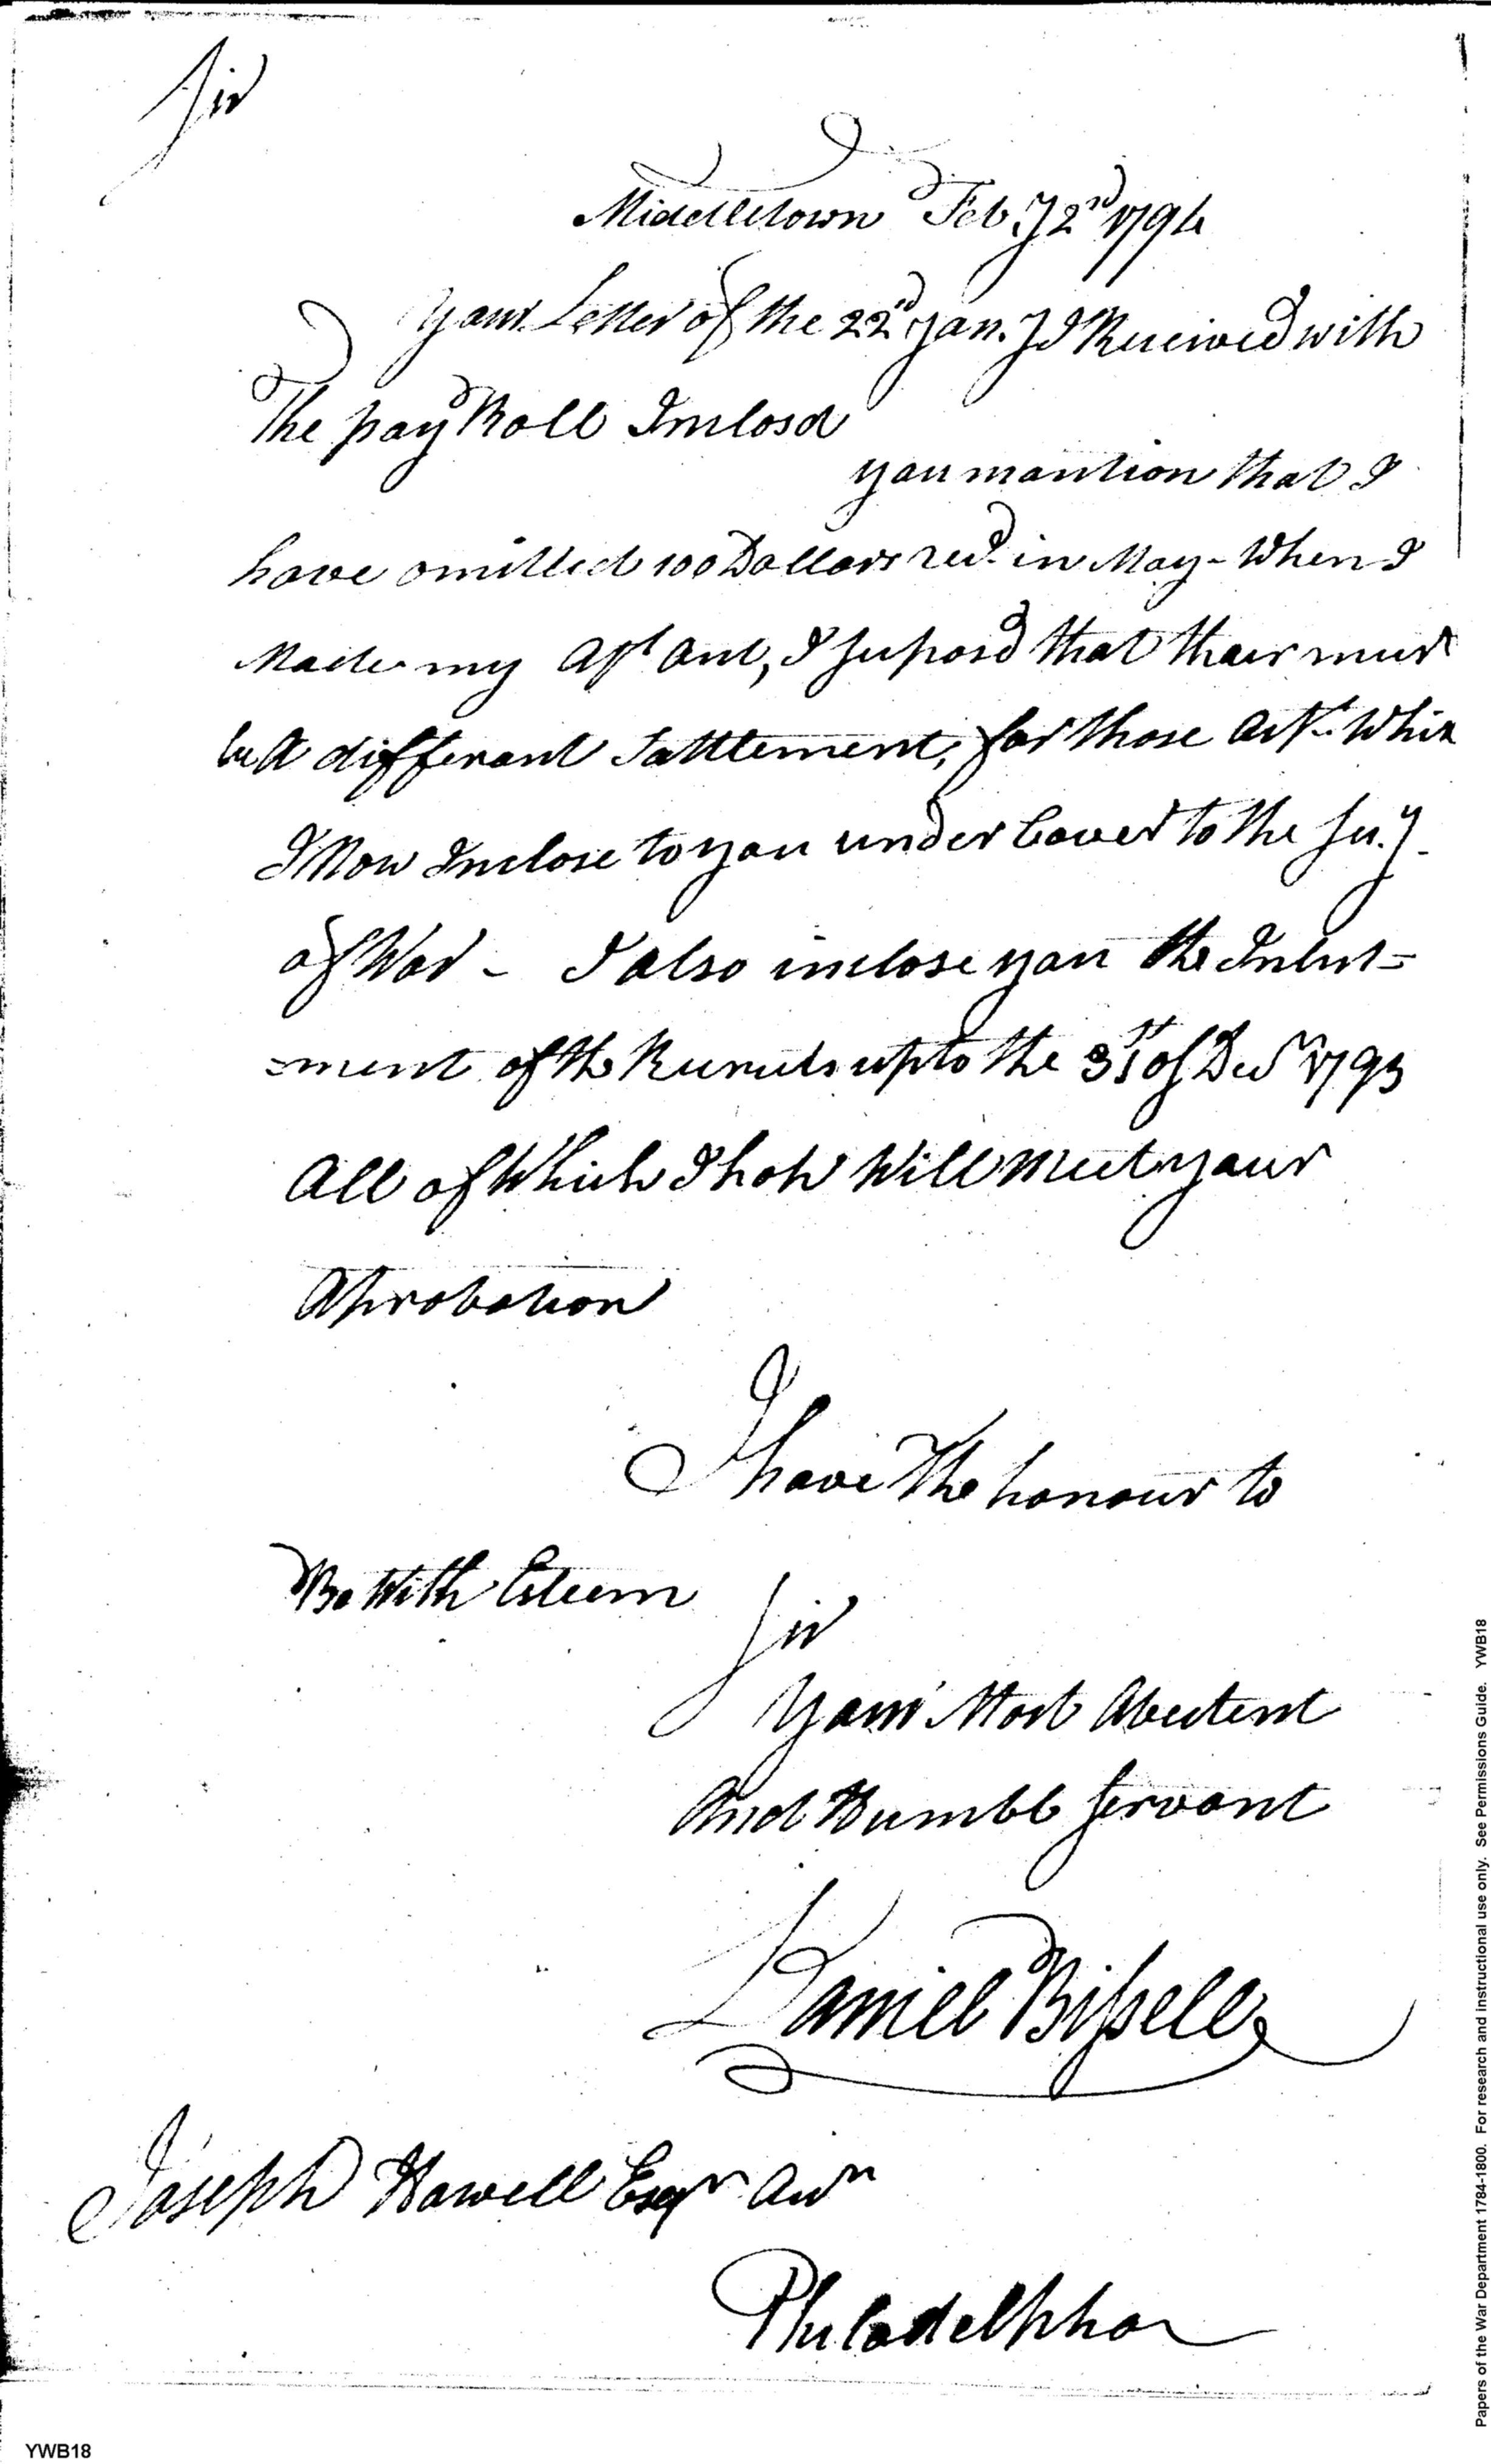 Sir
Middletown Feb.y 2nd 1794
Your Letter of the 22nd Jan.y I Received with
The pay Roll Inclosd
you mantion that I
have omitted 100 Dollars recd. in May - When I
Made my Act, I suposd that thair must
be A different Sattlement, for those Act. Which
I Now Inclose to you under Cover to the Sec.y
of War - I also inclose you the Inlist=
=ment of the Recruits up to the 31st of Decr 1793
All of Which I hope Will meet your
Aprobation
I have The honour to
Be With Esteem
Sir
Your Most Abedient
And Humble Servant
Daniel Bissell
Joseph Howell Esqr
Philadelphia
Papers of the War Department 1784-1800. For research and instructional use only. See Permissions Guide. YWB18
YWB18